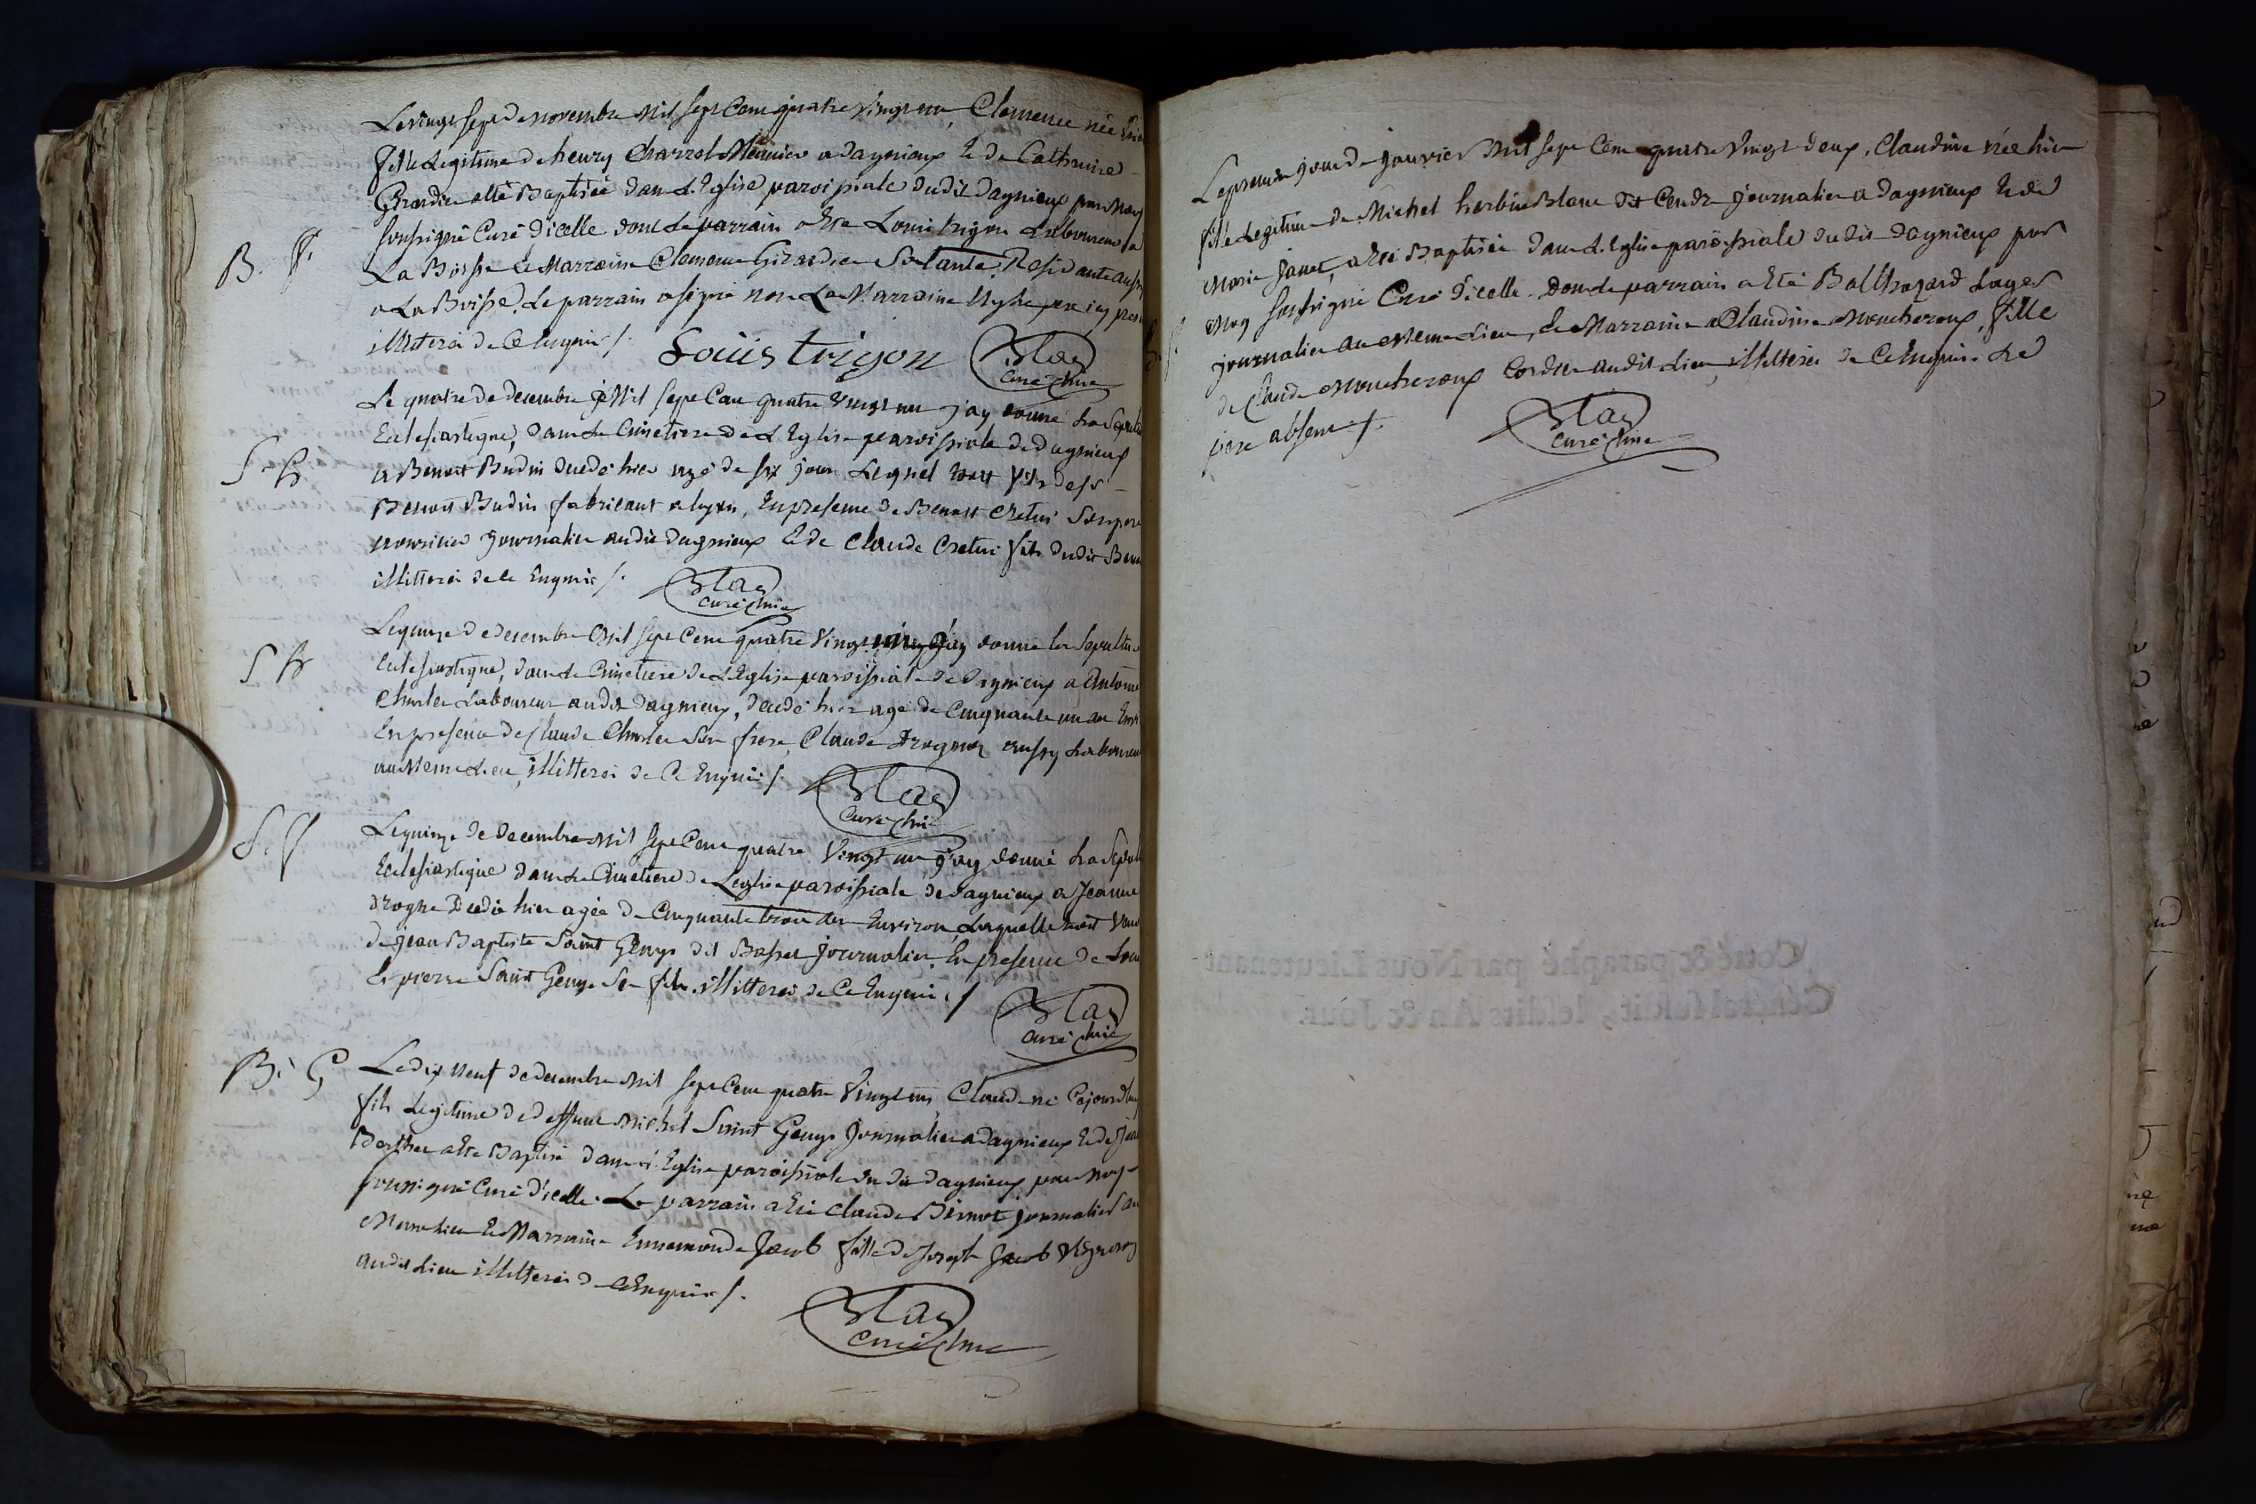 Le vingt sept de novembre Mil sept Cent quatre vingt un, Clemence née
fille Legitime de henry Charrel Meunier a dagnieux Et de Catherine
Girardier a été Baptisée dans L'Eglise paroissiale dudit dagnieux par Moy
B. f.
soussigné Curé d'icelle dont Le parrain a Eté Louis trigon Laboureur a
La Boisse La Marraine Clemence Girardier Sa tante Residante aussy
a La Boisse, Le parrain a signé non La Marraine
illiterei de Ce Enquis /.
Louis trigon
Blas
curé
Le quatre de decembre Mil sept Cent quatre vingt un j'ay donné La Sepulture
Eclesiastique, dans Le Cimetiere de L'Eglise paroissiale de dagnieux
S. h
a Benoit Budin decedé hier agé de six jours Lequel Etoit fils de Sr
Benoit Budin fabricant a lyon, En presence de Benoit Cretin Son pere
nourricier journalier audit dagnieux Et de Claude Cretin fils dudit
illitterei de Ce Enquis /.
Blas
curé
Le quinze de decembre Mil sept Cent quatre vingt j'ay donné la Sepulture
S h
Eclesiastique, dans Le Cimetiere de L'Eglise paroissiale de dagnieux a Antoine
Charles Laboureur audit dagnieux, decedé hier agé de Cinquante un an
En presence de Claude Charles Son frere, Claude aussy Laboureur
au Meme Lieu, illitterei de Ce Enquis /.
Blas
curé
S. f
Le quinze de decembre Mil sept Cent quatre Vingt un j'ay donné La
Eclesiastique dans Le Cimetiere de L'eglise paroissiale de dagnieux a Jeanne
drogue decedée hier agée de Cinquante trois ans Environ, Laquelle Etoit
de jean Baptiste Saint Genys dit Basset journalier, En presence de
Et pierre Saint Genys Ses fils illitterei de Ce Enquis /
Blas
curé
B. G
Le dix neuf de decembre Mil sept Cent quatre Vingt un Claude né
fils Legitime de deffunt Michel Saint Genys journalier a dagnieux Et de
Berthet a été Baptisé dans L'Eglise paroissiale du dit dagnieux par Moy
soussigné Curé d'icelle. Le parrain a Eté Claude journalier au
Meme Lieu Et Marraine Ennemonde Jacob fille de Joseph Jacob Vigneron
audit Lieu illitterei de Ce Enquis /.
Blas
curé
Le premier jour de janvier Mil sept Cent quatre Vingt deux, Claudine née hier
fille Legitime de Michel Blanc dit journalier a dagnieux Et de
Marie Janet, a Eté Baptisée dans L'Eglise paroissiale du dit dagnieux par
Moy soussigné Curé d'icelle. Dont Le parrain a Eté Balthazard Lager
journalier au Meme Lieu, La Marraine Claudine Moucheroux, fille
de Claude Moucheroux Cordier audit Lieu, illitterei de Ce Enquis. Le
pere absent /.
Blas
curé
Cotté & paraphé par Nous Lieutenant
Général susdit, lesdits An & Jour.